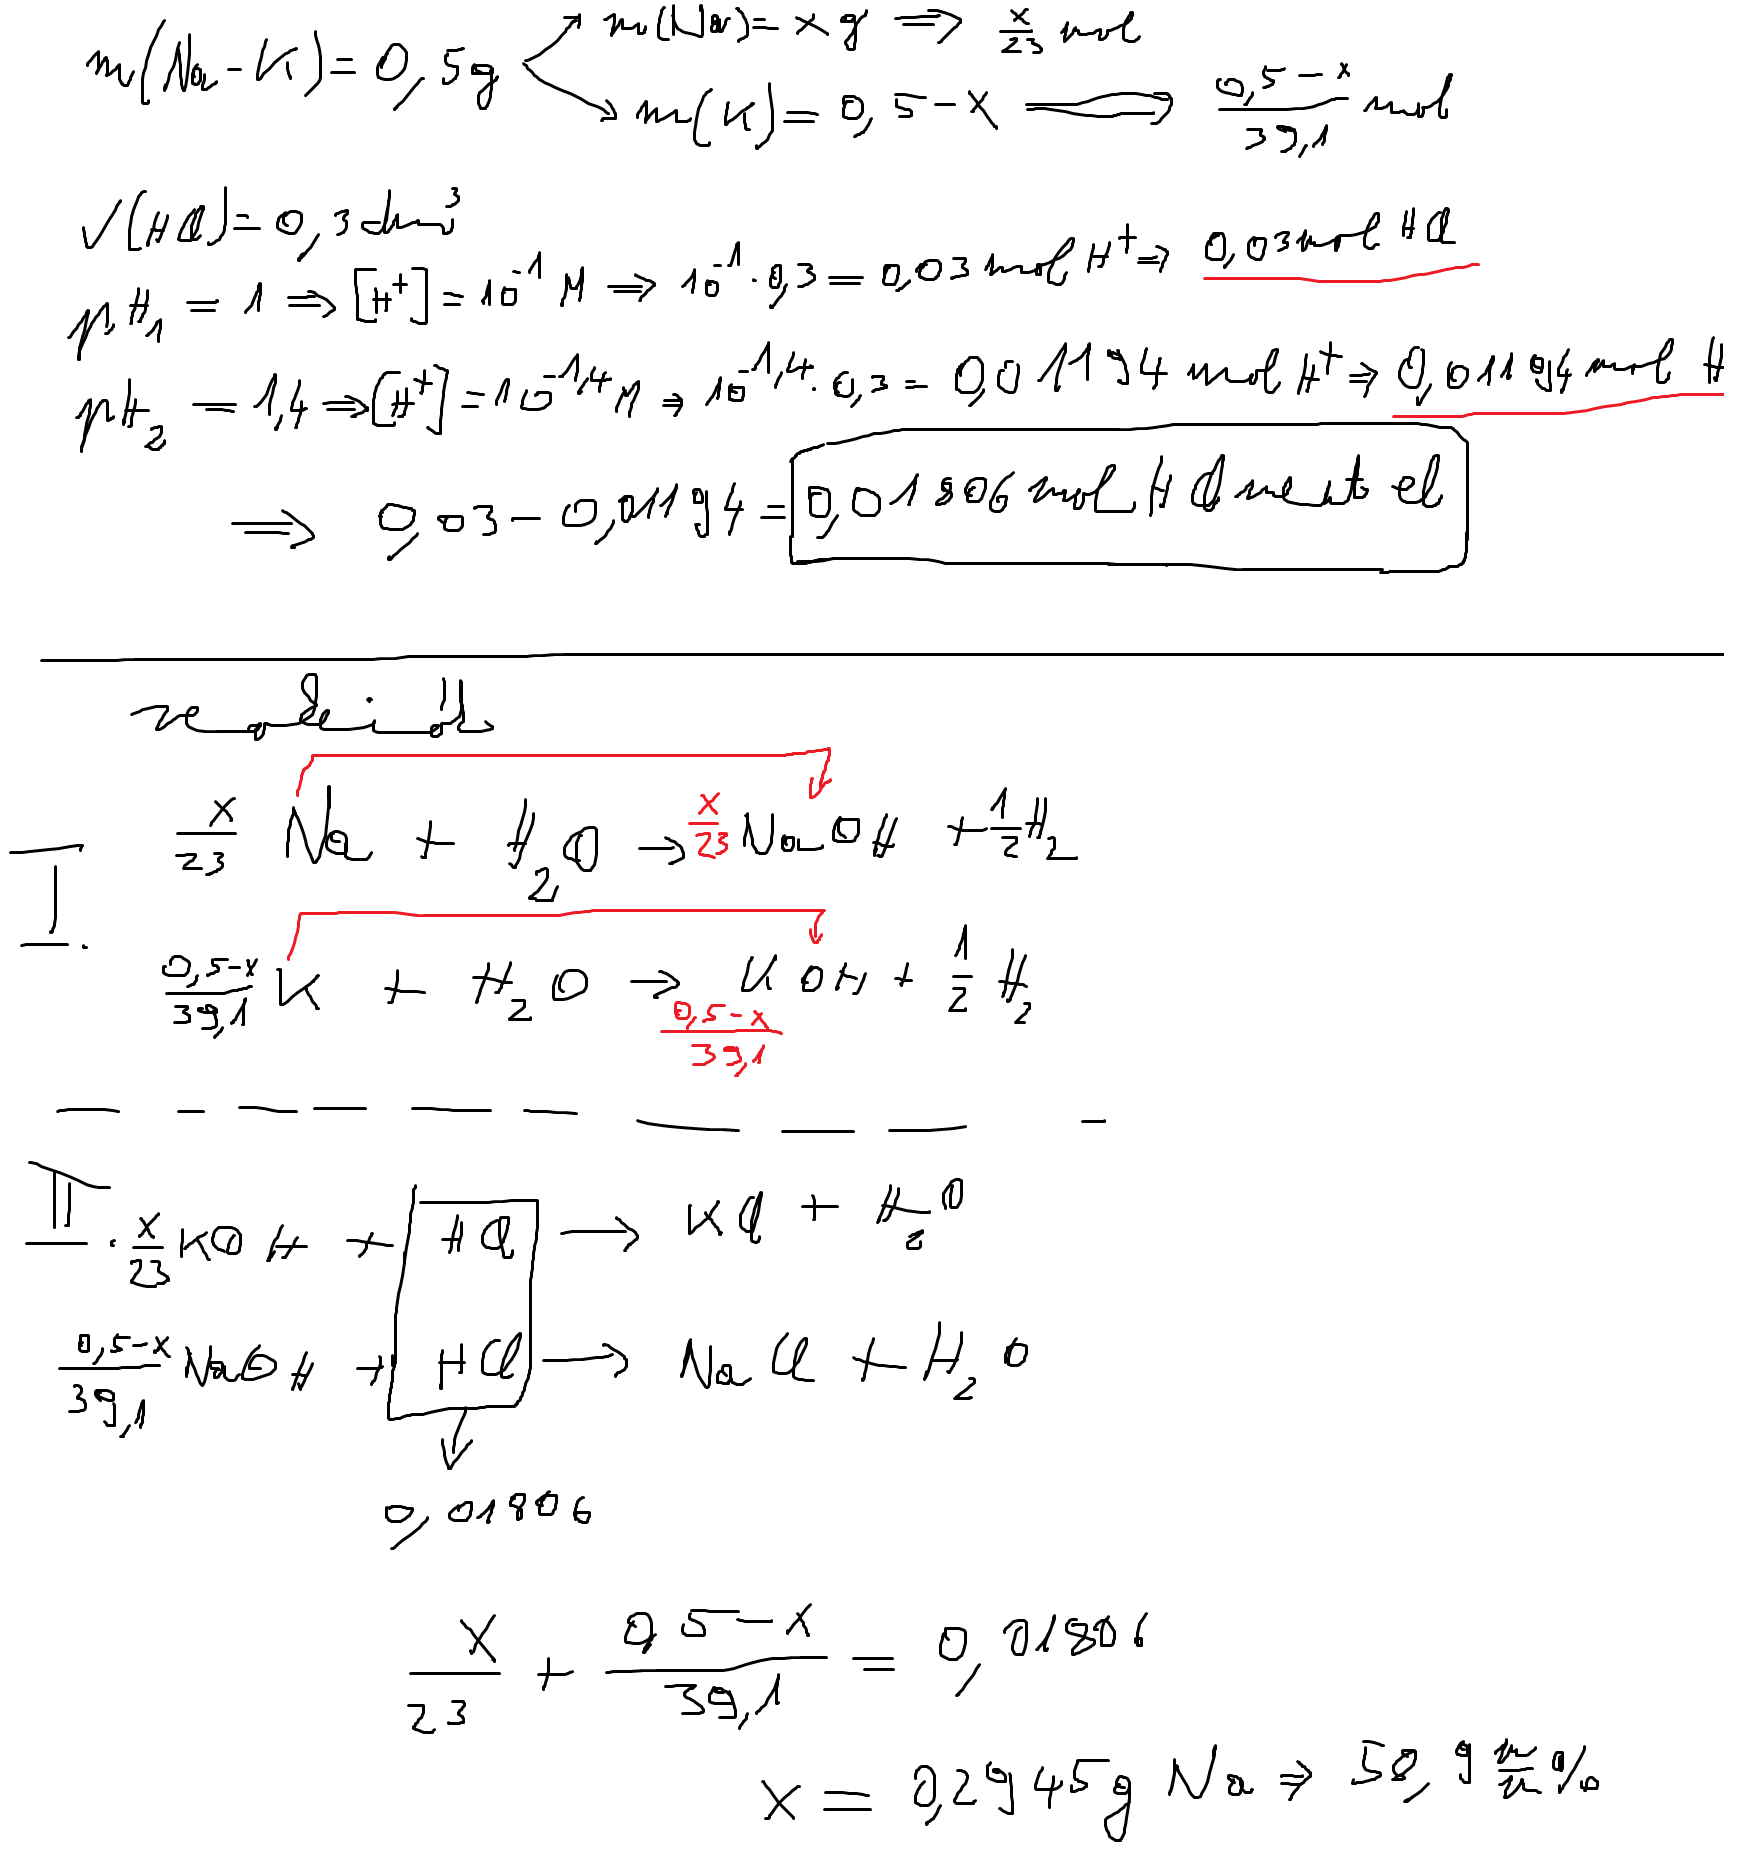 m(Na-K)=0,5g
m(Na)=xg ⇒ x/23 mol
m(K)=0,5-x ⇒ 0,5-x/39,1 mol
V(HCl)=0,3dm³
pH₁=1 ⇒ [H⁺]=10⁻¹ M ⇒ 10⁻¹·0,3=0,03mol H⁺ ⇒ 0,03mol HCl
pH₂=1,4 ⇒ [H⁺]=10⁻¹,⁴ M ⇒ 10⁻¹,⁴·0,3=0,01194 mol H⁺ ⇒ 0,01194 mol H
⇒ 0,03-0,01194=0,01806 mol HCl ment el
reakciók
I.
x/23 Na + H₂O → x/23 NaOH + 1/2 H₂
0,5-x/39,1 K + H₂O → 0,5-x/39,1 KOH + 1/2 H₂
II. x/23 KOH + HCl → KCl + H₂O
0,5-x/39,1 NaOH + HCl → NaCl + H₂O
0,01806
x/23 + 0,5-x/39,1 = 0,01806
x = 0,2945g Na ⇒ 58,9 m/m%